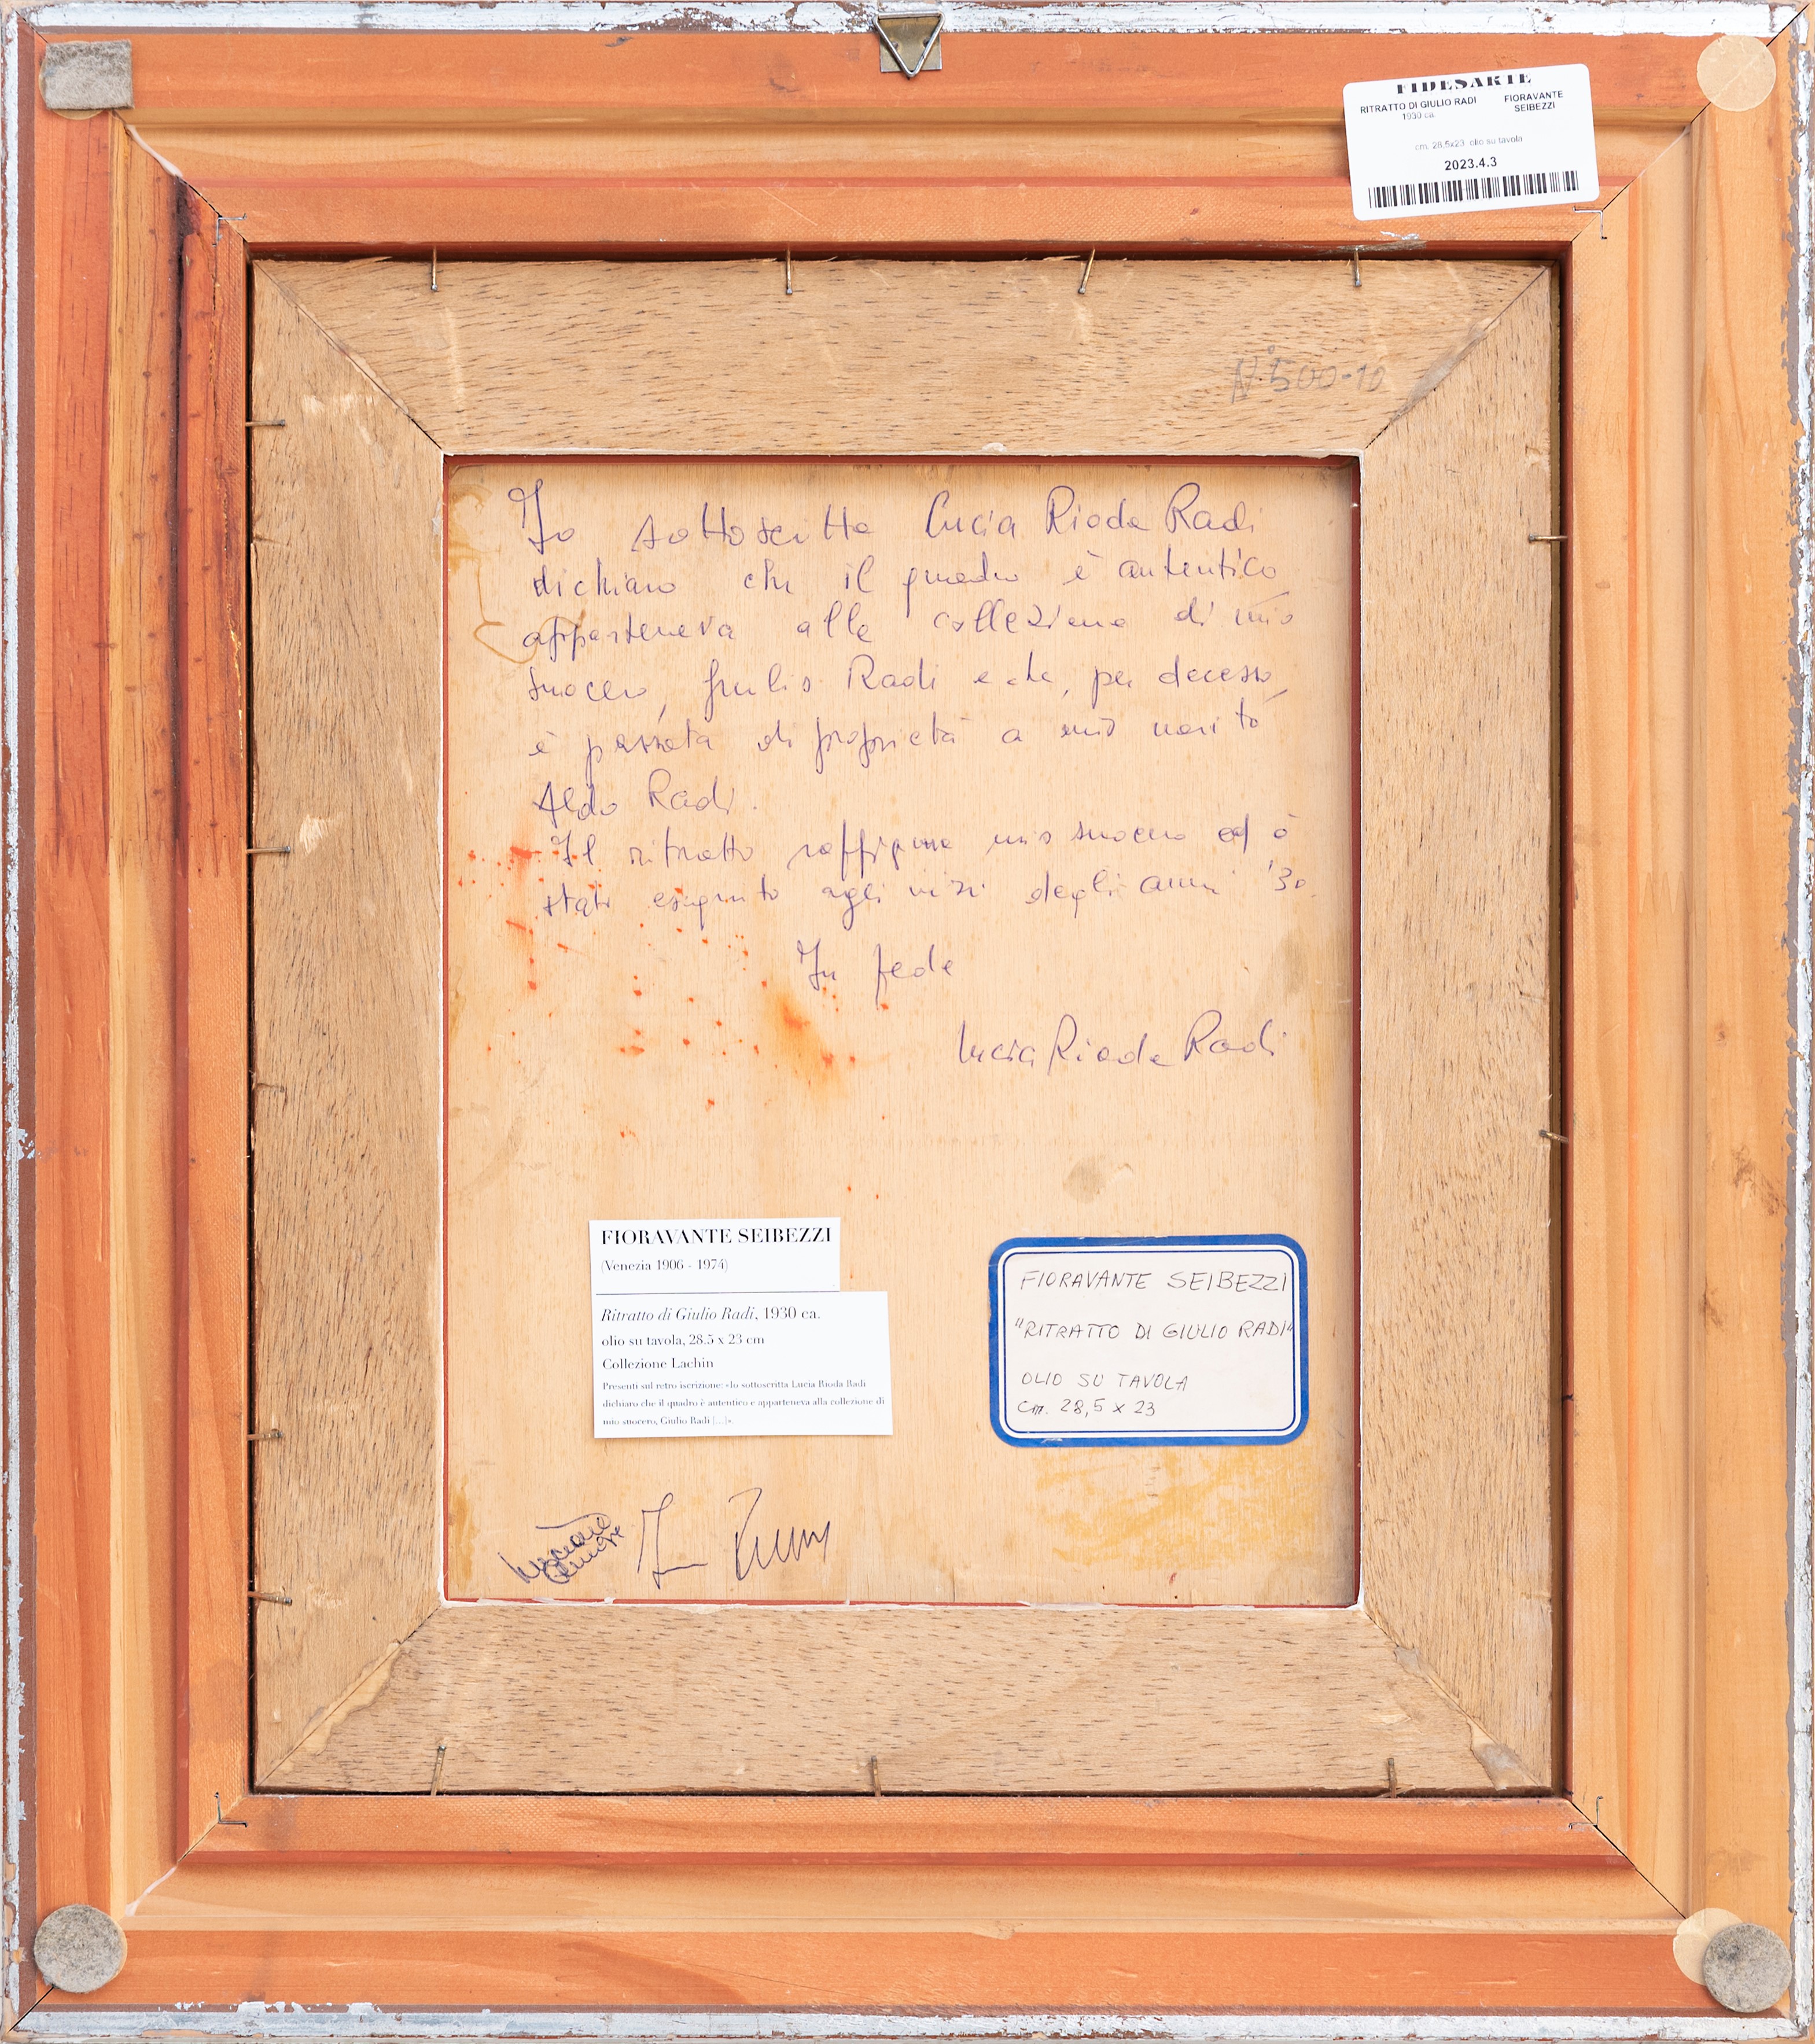 FIDESARTE
RITRATTO DI GIULIO RADI FIORAVANTE
1930 ca. SEIBEZZI
cm. 28,5x23 olio su tavola
2023.4.3
N° 500-10
Io sottoscritta Lucia Rioda Radi
dichiaro che il quadro è autentico
apparteneva alla collezione di mio
suocero, Giulio Radi e che, per decesso,
è passata di proprietà a mio marito
Aldo Radi.
Il ritratto raffigura mio suocero ed è
stato eseguito agli inizi degli anni '30.
In fede
Lucia Rioda Radi
FIORAVANTE SEIBEZZI
(Venezia 1906 - 1974)
Ritratto di Giulio Radi, 1930 ca.
olio su tavola, 28.5 x 23 cm
Collezione Lachin
Presenti sul retro iscrizione: «Io sottoscritta Lucia Rioda Radi
dichiaro che il quadro è autentico e apparteneva alla collezione di
mio suocero, Giulio Radi [...]».
FIORAVANTE SEIBEZZI
"RITRATTO DI GIULIO RADI"
OLIO SU TAVOLA
cm. 28,5 x 23